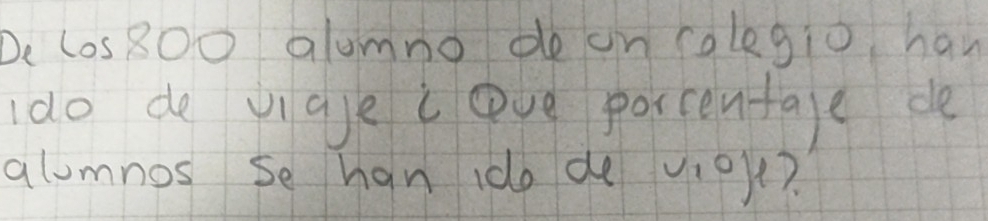 De los 800 alumno de un colegio, han
ido de viaje ¿ Que porcentaje de
alumnos se han ido de viaje?